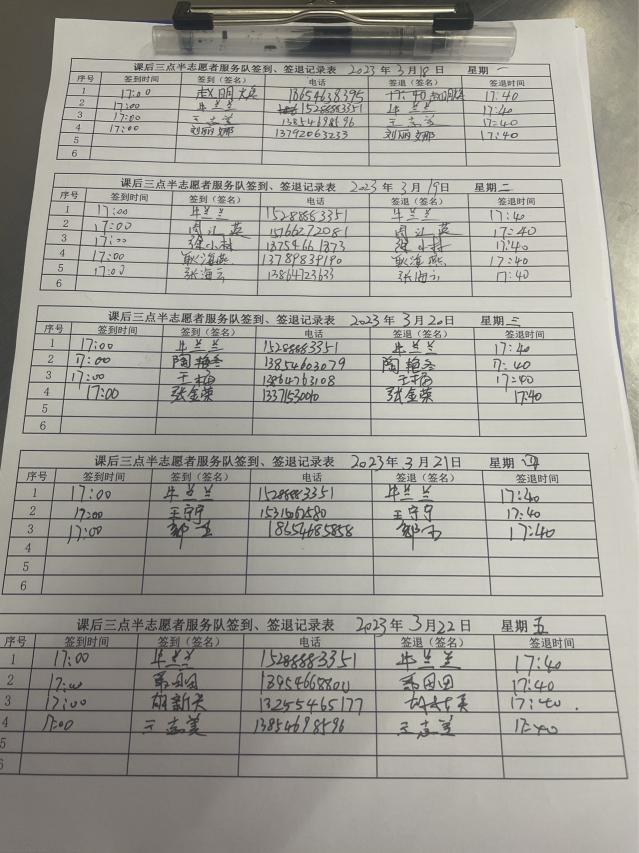 课后三点半志愿者服务队签到、签退记录表 2023年3月18日 星期一
序号 签到时间 签到（签名） 电话 签退（签名） 签退时间
1 17:00 赵明 18654638395 17:40 17:40
2 17:00 牛兰兰 15288883351 牛兰兰 17:40
3 17:00 王志美 13854698596 王志美 17:40
4 17:00 刘丽娜 13792063233 刘丽娜 17:40
5
6
课后三点半志愿者服务队签到、签退记录表 2023年3月19日 星期二
序号 签到时间 签到（签名） 电话 签退（签名） 签退时间
1 17:00 牛兰兰 15288883351 牛兰兰 17:40
2 17:00 周江英 15766272081 周江英 17:40
3 17:00 徐小林 13754661373 徐小林 17:40
4 17:00 耿海燕 13789839190 耿海燕 17:40
5 17:00 张海云 13864723633 张海云 17:40
6
课后三点半志愿者服务队签到、签退记录表 2023年3月20日 星期三
序号 签到时间 签到（签名） 电话 签退（签名） 签退时间
1 17:00 牛兰兰 15288883351 牛兰兰 17:40
2 17:00 陶艳冬 13854603079 陶艳冬 17:40
3 17:00 王梅 13864763108 王梅 17:40
4 17:00 张金荣 13371530010 张金荣 17:40
5
6
课后三点半志愿者服务队签到、签退记录表 2023年3月21日 星期四
序号 签到时间 签到（签名） 电话 签退（签名） 签退时间
1 17:00 牛兰兰 15288883351 牛兰兰 17:40
2 17:00 王宁宁 15315062580 王宁宁 17:40
3 17:00 18654685858 17:40
4
5
6
课后三点半志愿者服务队签到、签退记录表 2023年3月22日 星期五
序号 签到时间 签到（签名） 电话 签退（签名） 签退时间
1 17:00 牛兰兰 15288883351 牛兰兰 17:40
2 17:00 17:40
3 17:00 胡新英 13255465177 17:40
4 17:00 王志美 13854698596 王志美 17:40
5
6